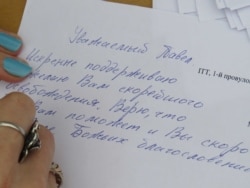 Уважаемый Павел
Искренне поддерживаю
желаю Вам скорейшего
освобождения. Верю, что
Вам поможет и Вы скоро
Божиих благословений
ПТ, 1-й провулок